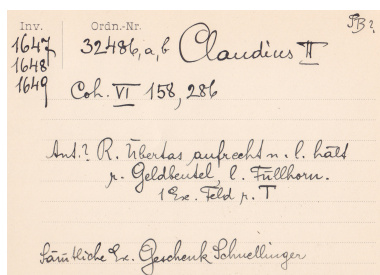 Inv. Ordn.-Nr. PB?
1647 32486,a,b Claudius II
1648
1649 Coh. VI 158, 286
Ant.? R. Ubertas aufrecht n. l. hält
r. Geldbeutel, l. Füllhorn.
1 Ex. Feld r. T
Sämtliche Ex. Geschenk Schnellinger